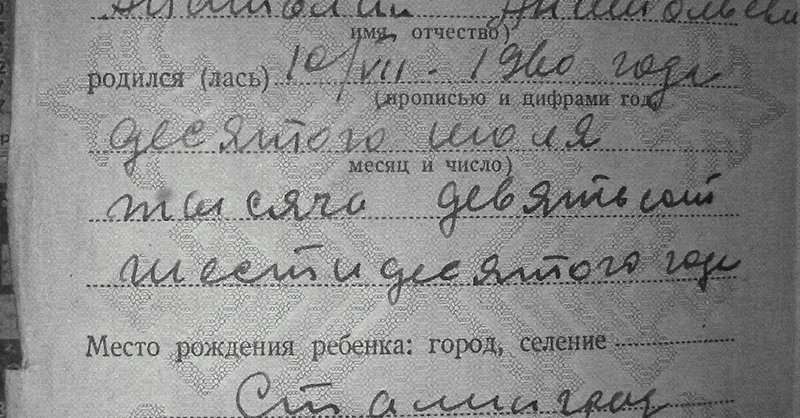 Анатолий Анатольеви
имя, отчество)
родился (лась) 10/VII - 1960 года
(прописью и цифрами год,
десятого июля
месяц и число)
тысяча девятьсот
шестидесятого года
Место рождения ребенка: город, селение
Сталинград